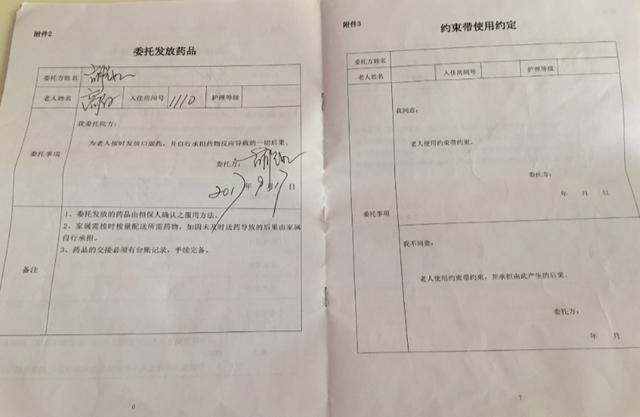 附件2
委托发放药品
委托方姓名
老人姓名 入住房间号 1110 护理等级
委托事项
我委托院方:
为老人按时发放口服药,并自行承担药物反应导致的一切后果。
委托方:
2017年9月17日
备注
1、委托发放的药品由担保人确认之服用方法。
2、家属需按时按量配送所需药物,如因未及时送药导致的后果由家属
自行承担。
3、药品的交接必须有台账记录,手续完备。
6
附件3
约束带使用约定
委托方姓名
老人姓名 入住房间号 护理等级
委托事项
我同意:
老人使用约束带约束。
委托方:
年 月 日
我不同意:
老人使用约束带约束,并承担由此产生的后果。
委托方:
年 月
7